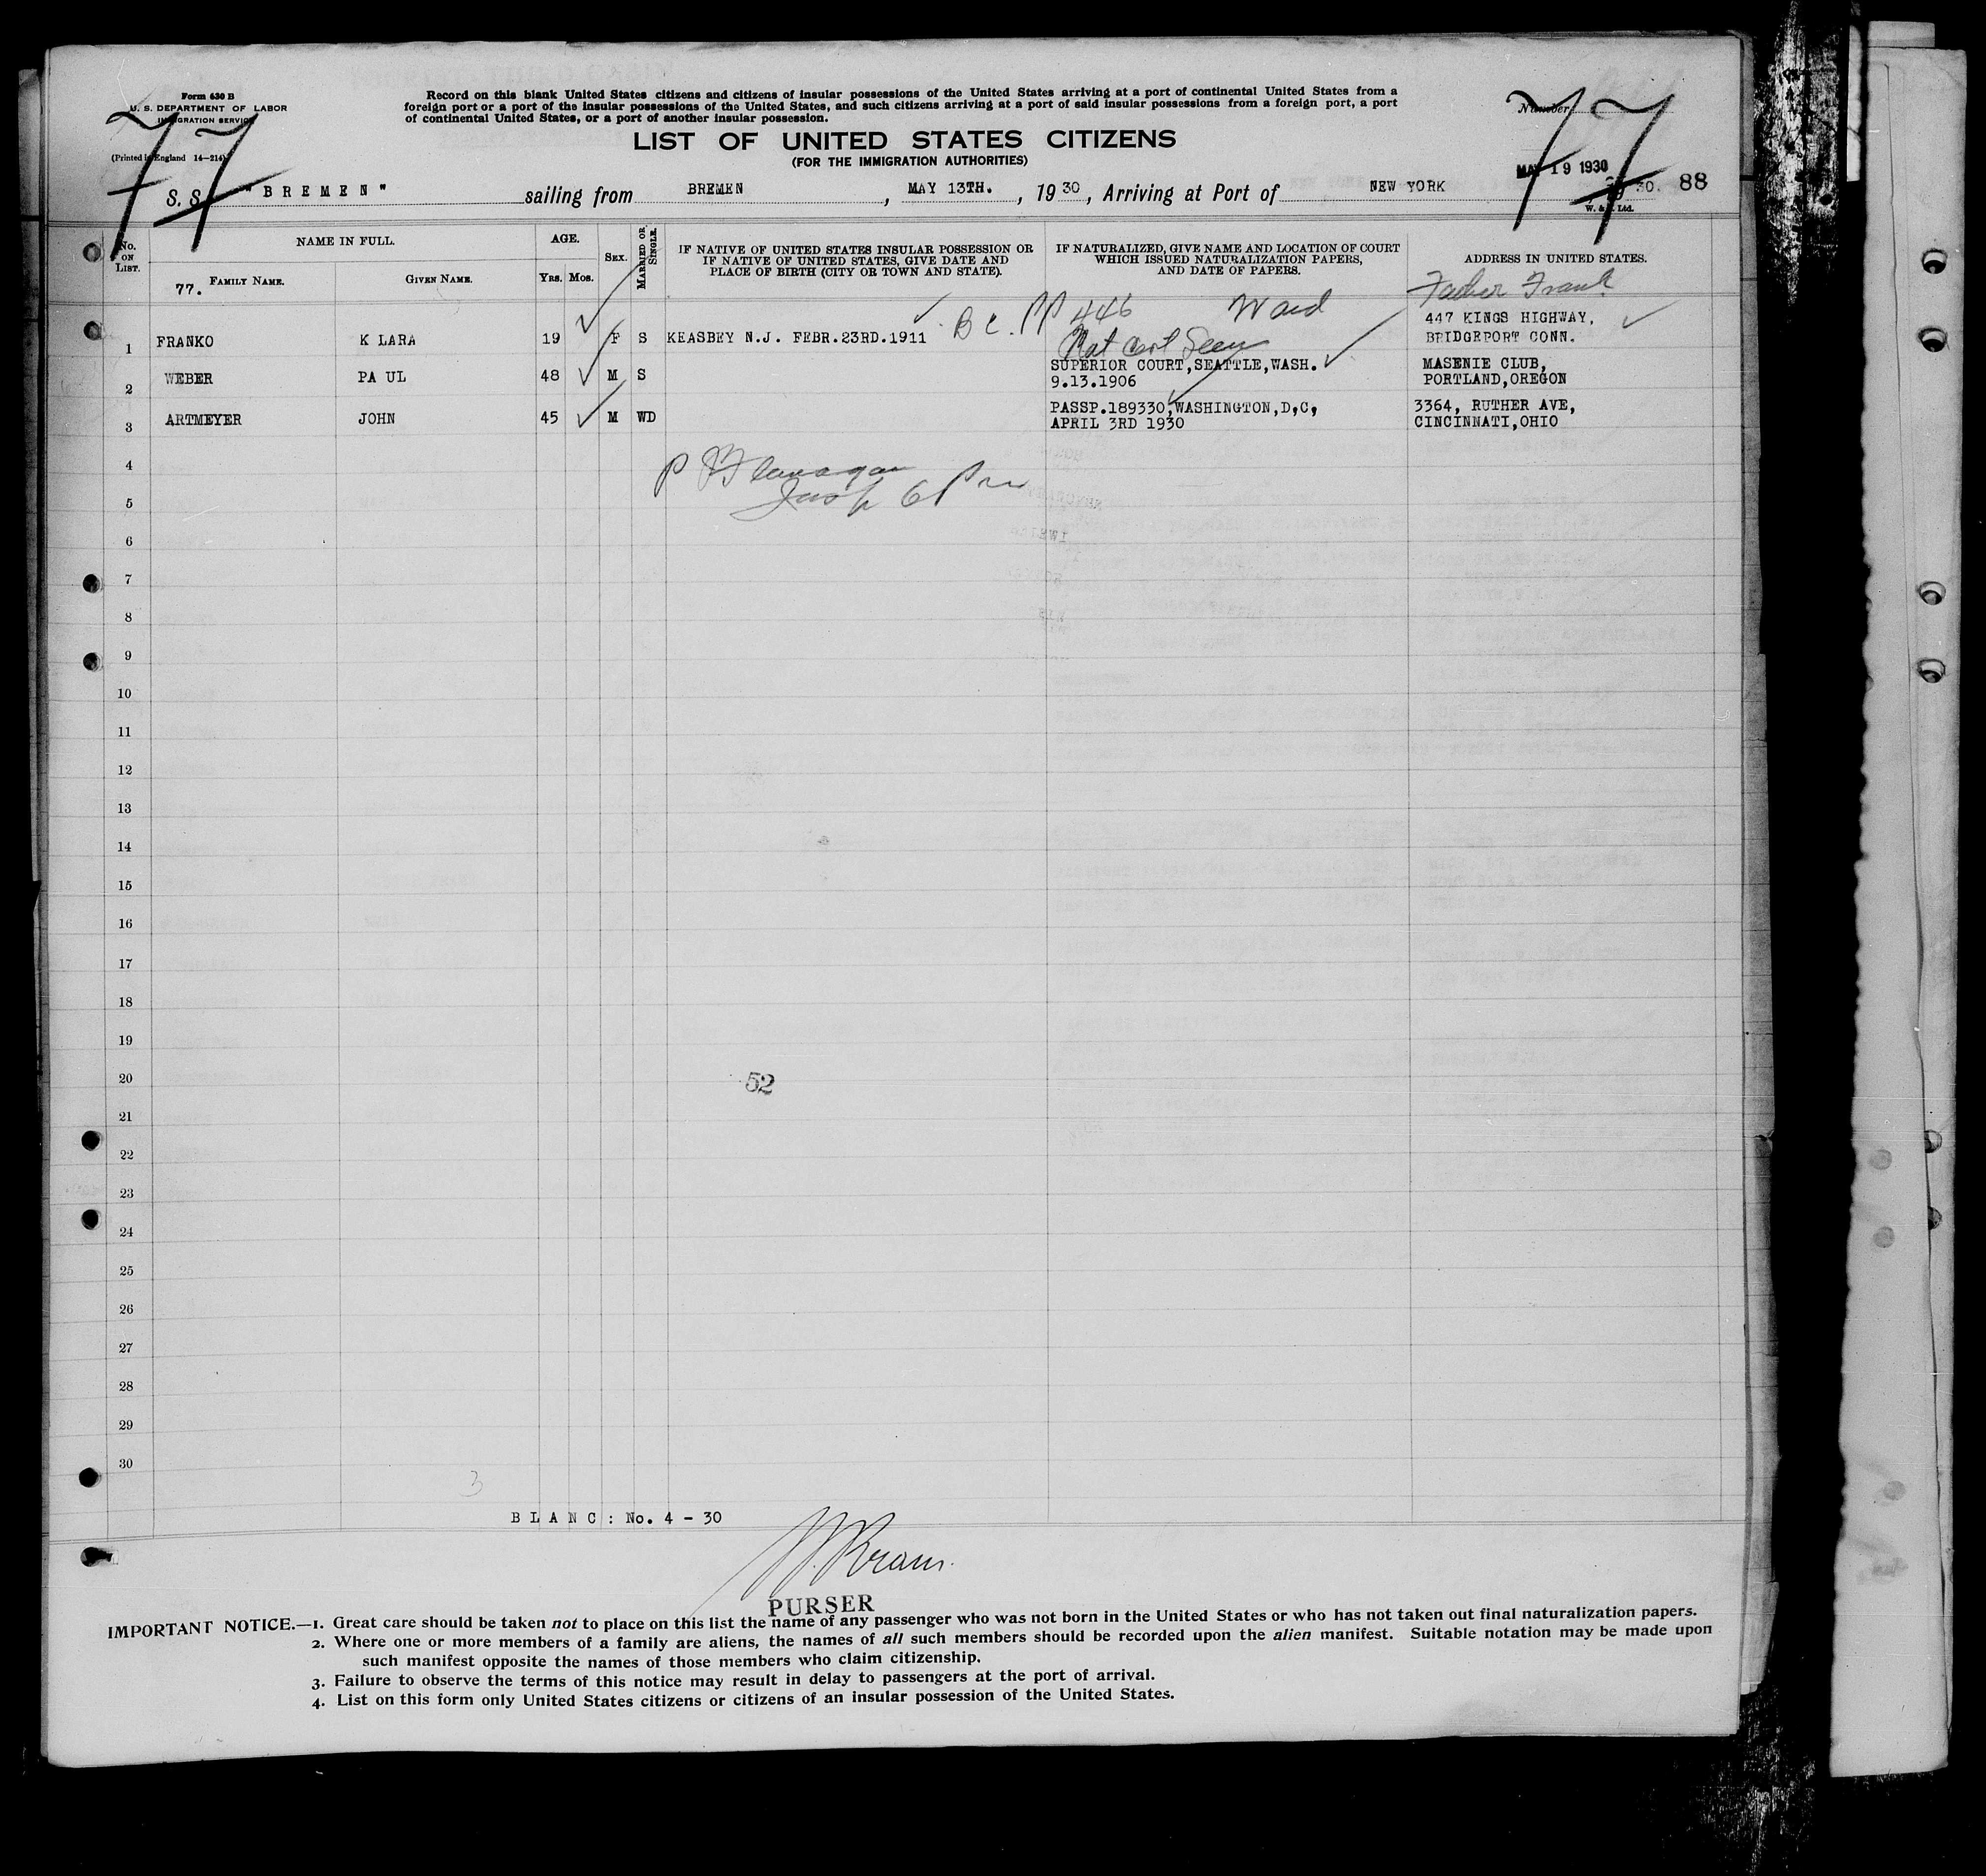 Form 630 B
U. S. DEPARTMENT OF LABOR
IMMIGRATION SERVICE
(Printed in England 14—214)
77
Record on this blank United States citizens and citizens of insular possessions of the United States arriving at a port of continental United States from a
foreign port or a port of the insular possessions of the United States, and such citizens arriving at a port of said insular possessions from a foreign port, a port
of continental United States, or a port of another insular possession.
LIST OF UNITED STATES CITIZENS
(FOR THE IMMIGRATION AUTHORITIES)
Number
77
MAY 19 1930
S. S. "BREMEN" sailing from BREMEN, MAY 13TH., 1930, Arriving at Port of NEW YORK 30. 88
W. & S. Ltd.
No. ON LIST.
NAME IN FULL.
77. FAMILY NAME.
GIVEN NAME.
AGE.
YRS. MOS.
SEX.
MARRIED OR SINGLE.
IF NATIVE OF UNITED STATES INSULAR POSSESSION OR
IF NATIVE OF UNITED STATES, GIVE DATE AND
PLACE OF BIRTH (CITY OR TOWN AND STATE).
IF NATURALIZED, GIVE NAME AND LOCATION OF COURT
WHICH ISSUED NATURALIZATION PAPERS,
AND DATE OF PAPERS.
ADDRESS IN UNITED STATES.
B C. PP 446 Ward
Father Frank
1 FRANKO K LARA 19 F S KEASBEY N.J. FEBR.23RD.1911 447 KINGS HIGHWAY,
BRIDGEPORT CONN.
Nat Cert Seen
2 WEBER PA UL 48 M S SUPERIOR COURT,SEATTLE,WASH. MASENIE CLUB,
9.13.1906 PORTLAND,OREGON
3 ARTMEYER JOHN 45 M WD PASSP.189330,WASHINGTON,D,C, 3364, RUTHER AVE,
APRIL 3RD 1930 CINCINNATI,OHIO
4
P Flanagan
5
Insp
6
7
8
9
10
11
12
13
14
15
16
17
18
19
20
52
21
22
23
24
25
26
27
28
29
30
3
BLANC: No. 4 - 30
PURSER
IMPORTANT NOTICE.—1. Great care should be taken not to place on this list the name of any passenger who was not born in the United States or who has not taken out final naturalization papers.
2. Where one or more members of a family are aliens, the names of all such members should be recorded upon the alien manifest. Suitable notation may be made upon
such manifest opposite the names of those members who claim citizenship.
3. Failure to observe the terms of this notice may result in delay to passengers at the port of arrival.
4. List on this form only United States citizens or citizens of an insular possession of the United States.